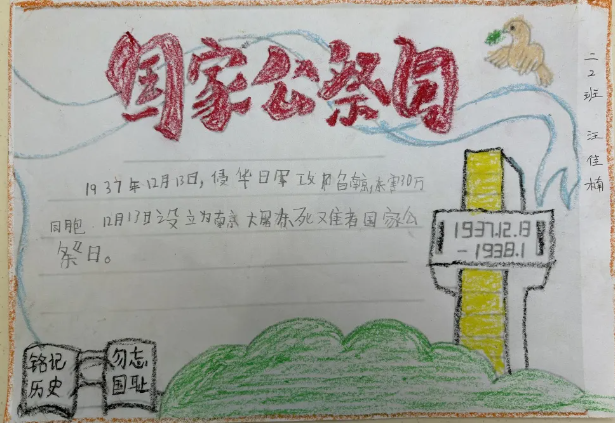 国家公祭日
二2班 汪佳楠
1937年12月13日,侵华日军攻占南京,杀害30万
同胞.12月13日设立为南京大屠杀死难者国家公
祭日。
1937.12.13
-1938.1
铭记
历史
勿忘
国耻